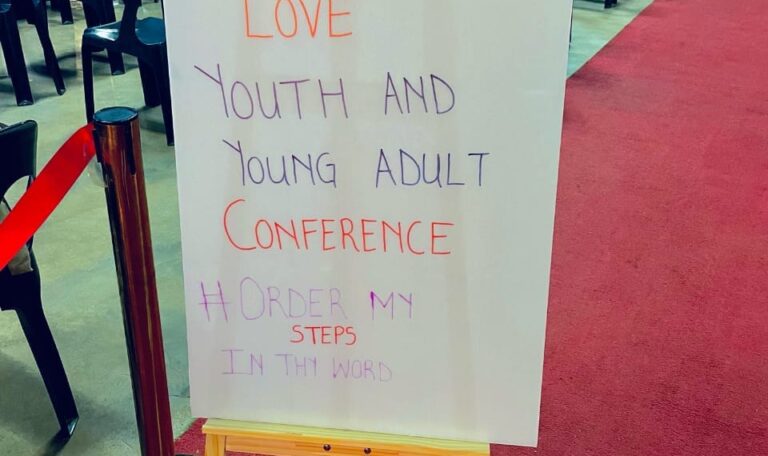 LOVE
YOUTH AND
YOUNG ADULT
CONFERENCE
#ORDER MY
STEPS
IN THY WORD